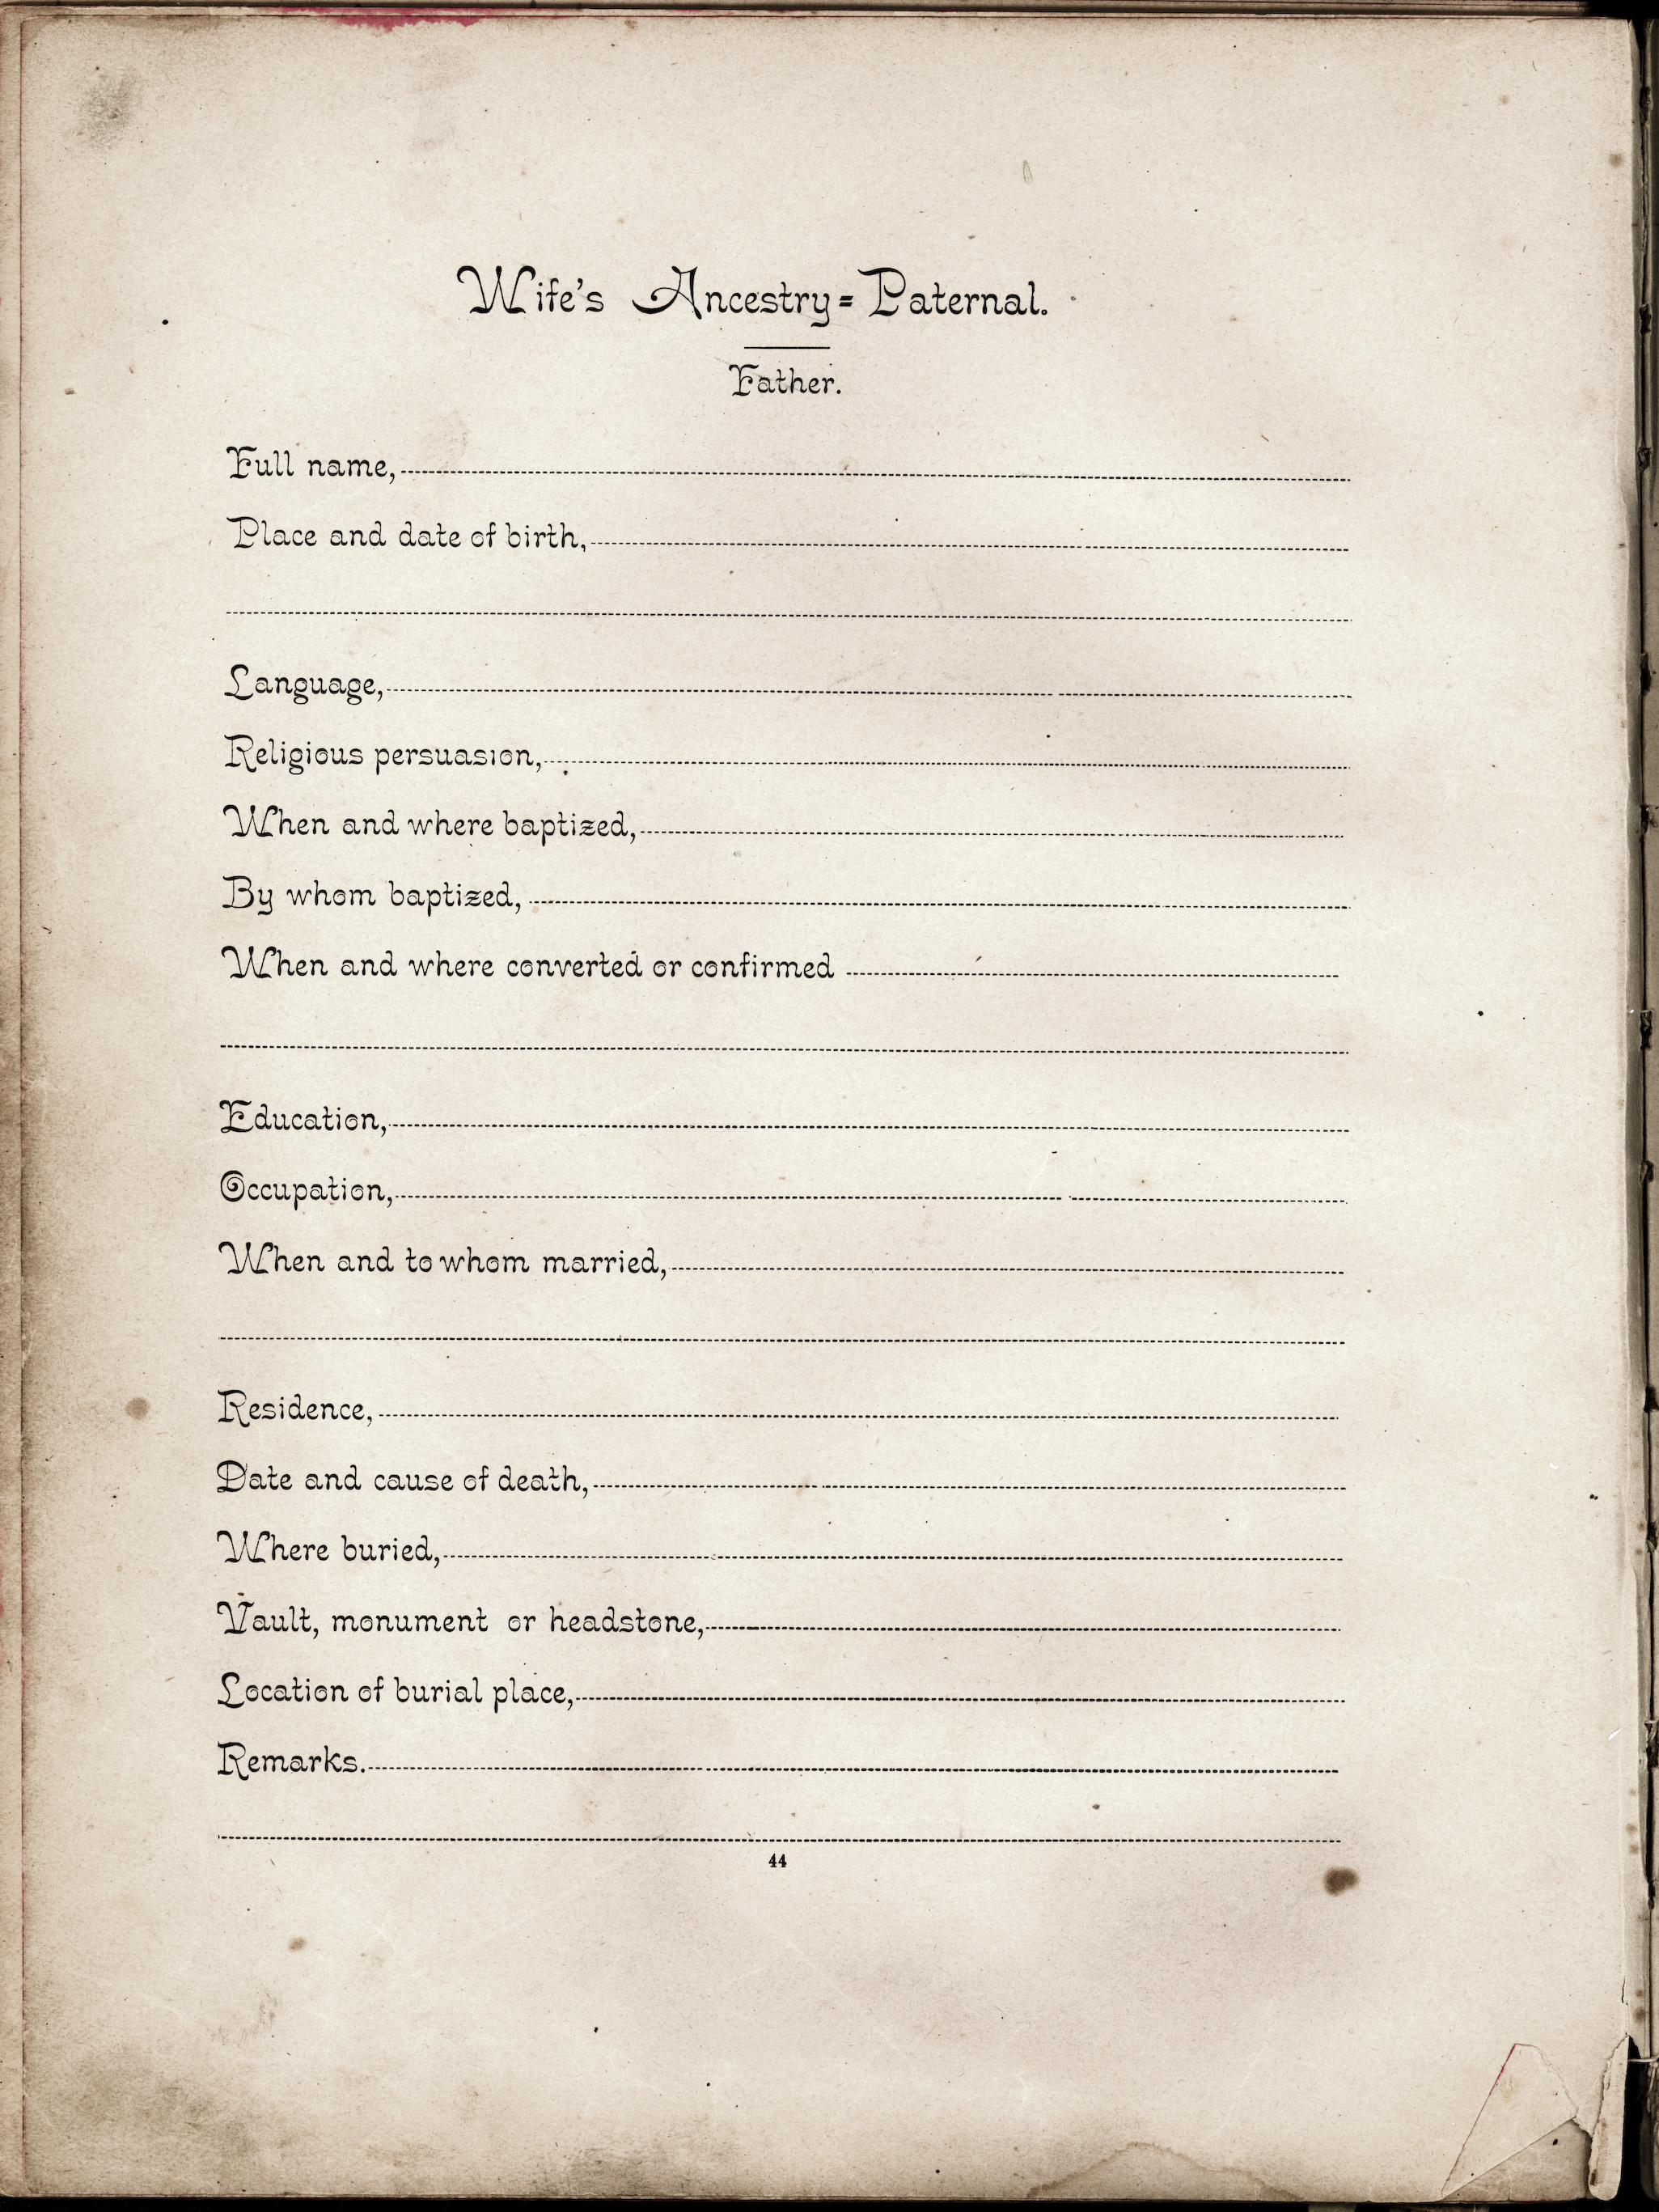 Wife's Ancestry=Paternal.
Father.
Full name,
Place and date of birth,
Language,
Religious persuasion,
When and where baptized,
By whom baptized,
When and where converted or confirmed
Education,
Occupation,
When and to whom married,
Residence,
Date and cause of death,
Where buried,
Vault, monument or headstone,
Location of burial place,
Remarks.
44